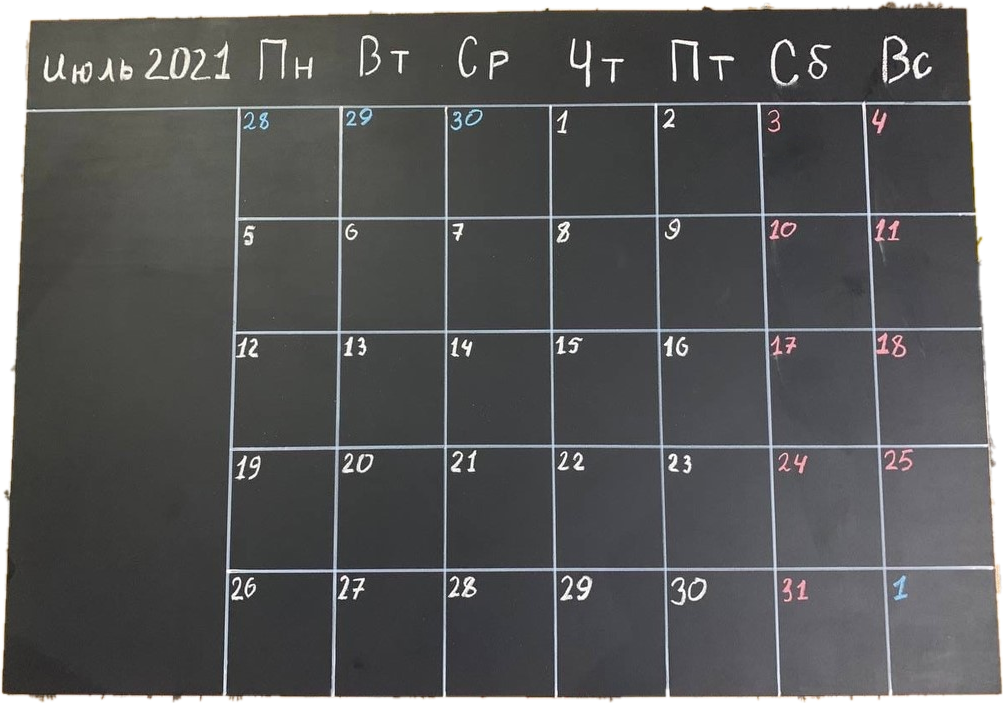 Июль 2021 Пн Вт Ср Чт Пт Сб Вс
28 29 30 1 2 3 4
5 6 7 8 9 10 11
12 13 14 15 16 17 18
19 20 21 22 23 24 25
26 27 28 29 30 31 1